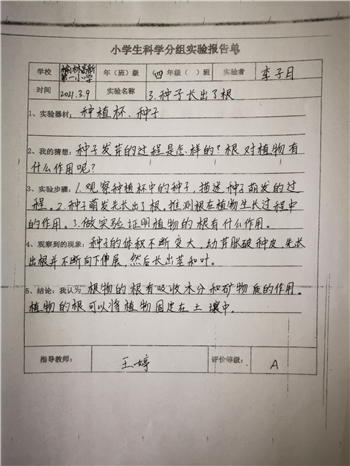 小学生科学分组实验报告单
学校 第一小学 年（班）级 四年级（ ）班 实验者 李子月
时间 2021.3.9 实验名称 3.种子长出了根
1、实验器材：种植杯、种子
2、我的猜想：种子发芽的过程是怎样的？根对植物有
什么作用呢？
3、实验步骤：1.观察种植杯中的种子，描述种子萌发的过
程。2.种子萌发先长出了根，推测根在植物生长过程中
的作用。3.做实验证明植物的根有什么作用。
4、观察到的现象：种子的体积不断变大，幼芽胀破种皮，先长
出根并不断向下伸展，然后长出茎和叶。
5、结论：我认为 植物的根有吸收水分和矿物质的作用。
植物的根可以将植物固定在土壤中。
指导教师： 王婷 评价等级： A